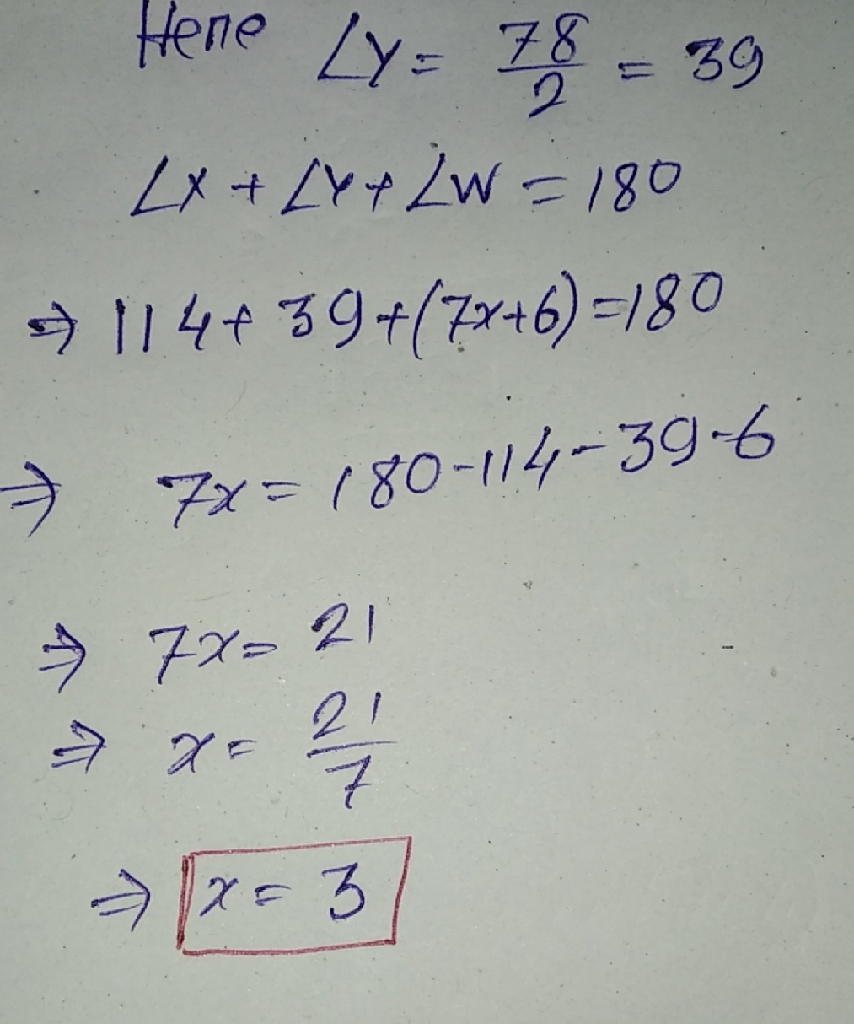 Here ∠Y = 78/2 = 39
∠X + ∠Y + ∠W = 180
⇒ 114 + 39 + (7x+6) = 180
⇒ 7x = 180-114-39-6
⇒ 7x = 21
⇒ x = 21/7
⇒ x = 3